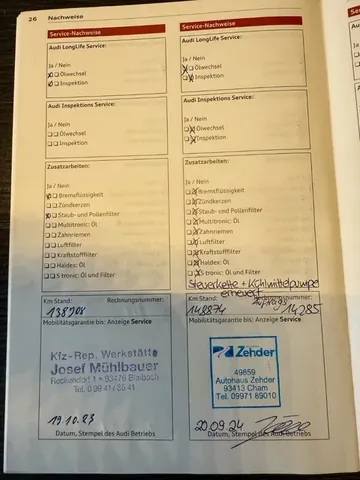 26 Nachweise
Service-Nachweise
Audi LongLife Service:
Ja / Nein
Ölwechsel
Inspektion
Audi Inspektions Service:
Ölwechsel
Inspektion
Zusatzarbeiten:
Ja / Nein
Bremsflüssigkeit
Zündkerzen
Staub- und Pollenfilter
Multitronic: Öl
Zahnriemen
Luftfilter
Kraftstofffilter
Haldex: Öl
S tronic: Öl und Filter
Km Stand: Rechnungsnummer:
138908
Mobilitätsgarantie bis: Anzeige Service
Kfz-Rep. Werkstätte
Josef Mühlbauer
93476 Blaibach
Tel. 0 99 41 / 36 41
19.10.23
Datum, Stempel des Audi Betriebs
Service-Nachweise
Audi LongLife Service:
Ja / Nein
Ölwechsel
Inspektion
Audi Inspektions Service:
Ölwechsel
Inspektion
Zusatzarbeiten:
Ja / Nein
Bremsflüssigkeit
Zündkerzen
Staub- und Pollenfilter
Multitronic: Öl
Zahnriemen
Luftfilter
Kraftstofffilter
Haldex: Öl
S tronic: Öl und Filter
Steuerkette + Kühlmittelpumpe
erneuert
Km Stand: Rechnungsnummer:
148874 14285
Mobilitätsgarantie bis: Anzeige Service
Zehder
49859
Autohaus Zehder
93413 Cham
Tel. 09971 89010
20.09.24
Datum, Stempel des Audi Betriebs